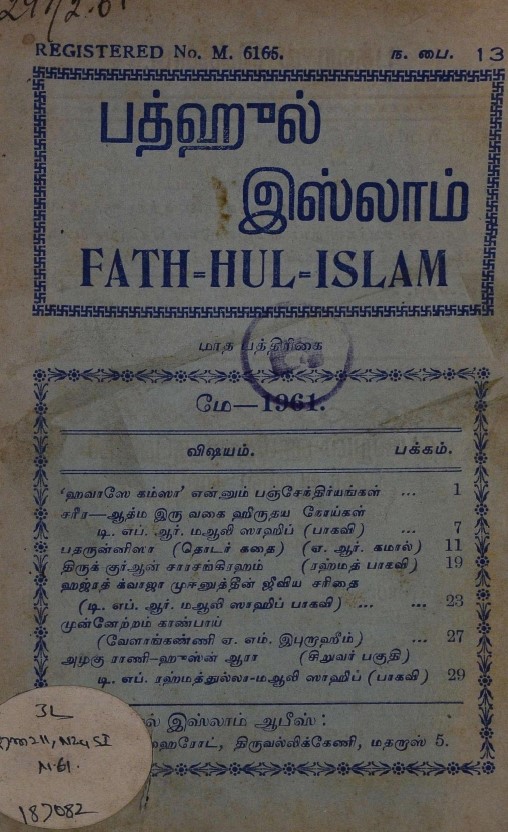 REGISTERED No. M. 6165. ந. பை. 13
பத்ஹுல்
இஸ்லாம்
FATH=HUL=ISLAM
மாத பத்திரிகை
மே—1961.
விஷயம். பக்கம்.
‘ஹவாஸே கம்ஸா’ எனனும் பஞ்சேக்திர்யங்கள் ... 1
சரீர—ஆத்ம இரு வகை ஹிருதய நோய்கள்
டி. எப். ஆர். மஆலி ஸாஹிப் (பாகவி) ... 7
பதருன்னிஸா (தொடர் கதை) (ஏ. ஆர். கமால்) 11
திருக் குர்ஆன் சாரசங்கிரஹம் (ரஹ்மத் பாகவி) 19
ஹஜ்ரத் க்வாஜா முஈனுத்தீன் ஜீவிய சரிதை
(டி. எப். ஆர். மஆலி ஸாஹிப் பாகவி) ... ... 23
முன்னேற்றம் காண்பாய்
(வேளாங்கண்ணி ஏ. எம். இபுறாஹீம்) ... 27
அழகு ராணி–ஹுஸ்ன் ஆரா (சிறுவர் பகுதி)
டி. எப். ரஹ்மத்துல்லா-மஆலி ஸாஹிப் (பாகவி) 29
ல் இஸ்லாம் ஆபீஸ் :
ஹரோட், திருவல்லிக்கேணி, மதராஸ் 5.
3L
N61
187082